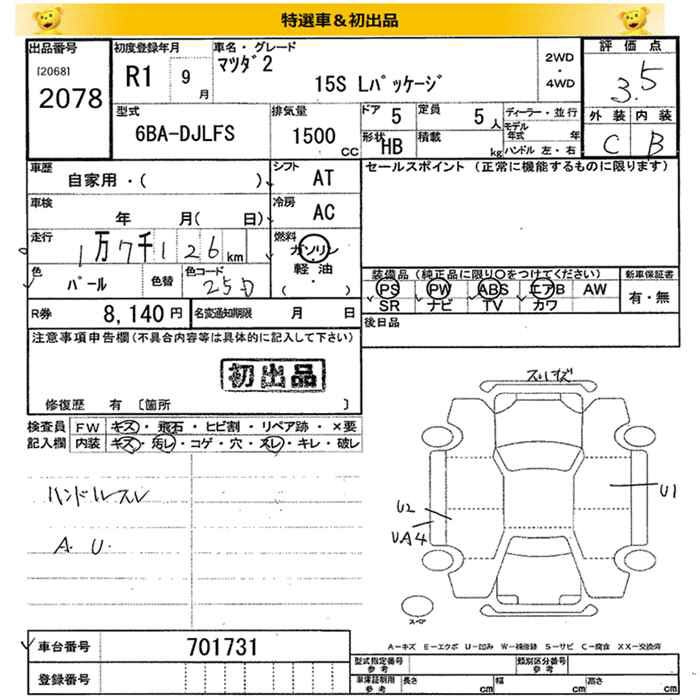 特選車＆初出品
出品番号
[2068]
2078
初度登録年月
R1 9月
車名・グレード
マツダ2
15S Lパッケージ
2WD
・
4WD
評価点
3.5
外装 内装
C B
型式
6BA-DJLFS
排気量
1500 CC
ドア 5
定員 5人
形状 HB
積載 kg
ディーラー・並行
モデル年式 年
ハンドル 左・右
車歴
自家用・( )
シフト AT
セールスポイント (正常に機能するものに限ります)
車検
年 月( 日)
冷房 AC
走行
1万7千126km
燃料
ガソリン
軽油
( ・ )
色
パール
色替
色コード
25D
装備品(純正品に限り○をつけてください)
PS PW ABS エアB AW
SR ナビ TV カワ
新車保証書
有・無
R券 8,140円
名変通知期限 月 日
後日品
注意事項申告欄(不具合内容等は具体的に記入して下さい)
初出品
修復歴 有 〔箇所 〕
検査員 FW キズ・飛石・ヒビ割・リペア跡・×要
記入欄 内装 キズ・汚レ・コゲ・穴・スレ・キレ・破レ
ハンドルスレ
A. U.
スリキズ
U1
U2
UA4
スペア
A－キズ E－エクボ U－凹み W－補修跡 S－サビ C－腐食 XX－交換済
車台番号 701731
登録番号
型式指定番号 参考
類別区分番号 参考
車庫証明用 参考
長さ cm
幅 cm
高さ cm